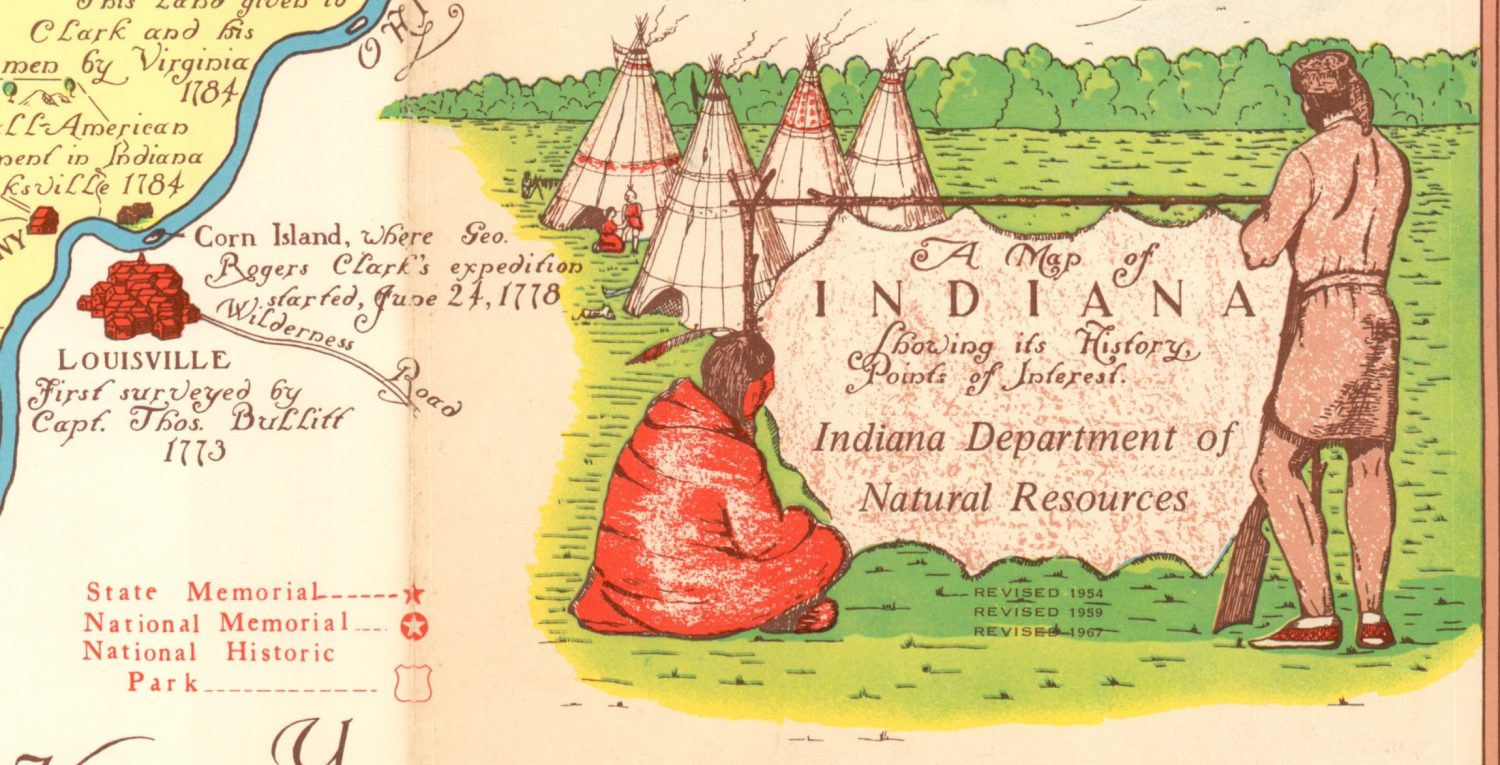 This Land given to
Clark and his
men by Virginia
1784
All-American
in Indiana
1784
OHI
Corn Island, where Geo.
Rogers Clark's expedition
started, June 24, 1778
Wilderness
Road
LOUISVILLE
First surveyed by
Capt. Thos. Bullitt
1773
State Memorial
National Memorial
National Historic
Park
A Map of
INDIANA
Showing its History,
Points of Interest.
Indiana Department of
Natural Resources
REVISED 1954
REVISED 1959
REVISED 1967